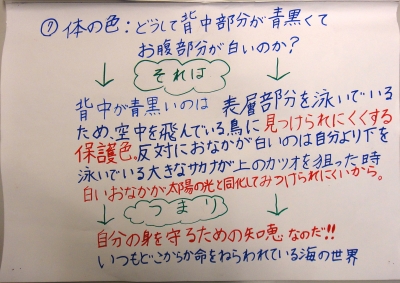 ⑦体の色：どうして背中部分が青黒くて
お腹部分が白いのか？
それは
背中が青黒いのは 表層部分を泳いでいる
ため、空中を飛んでいる鳥に見つけられにくくする
保護色。反対におなかが白いのは自分より下を
泳いでいる大きなサカナが上のカツオを狙った時
白いおなかが太陽の光と同化してみつけられにくいから。
つまり
自分の身を守るための知恵なのだ!!
いつもどこからか命をねらわれている海の世界